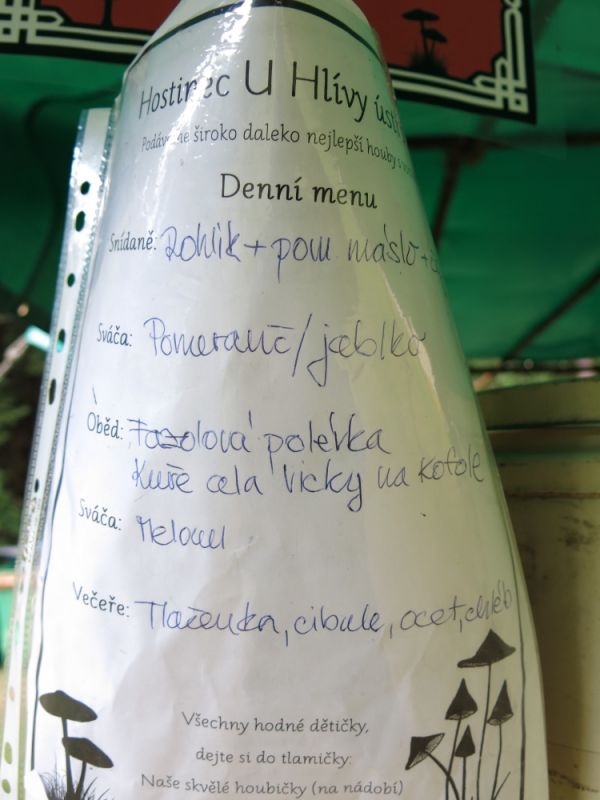 Hostinec U Hlívy
Podáváme široko daleko nejlepší houby
Denní menu
Snídaně: Rohlík + pom. máslo +
Sváča: Pomeranč/jablko
Oběd: Fazolová polévka
Kuře na kofole
Sváča: Meloun
Večeře: Tlačenka, cibule, ocet, chléb
Všechny hodné dětičky,
dejte si do tlamičky:
Naše skvělé houbičky (na nádobí)